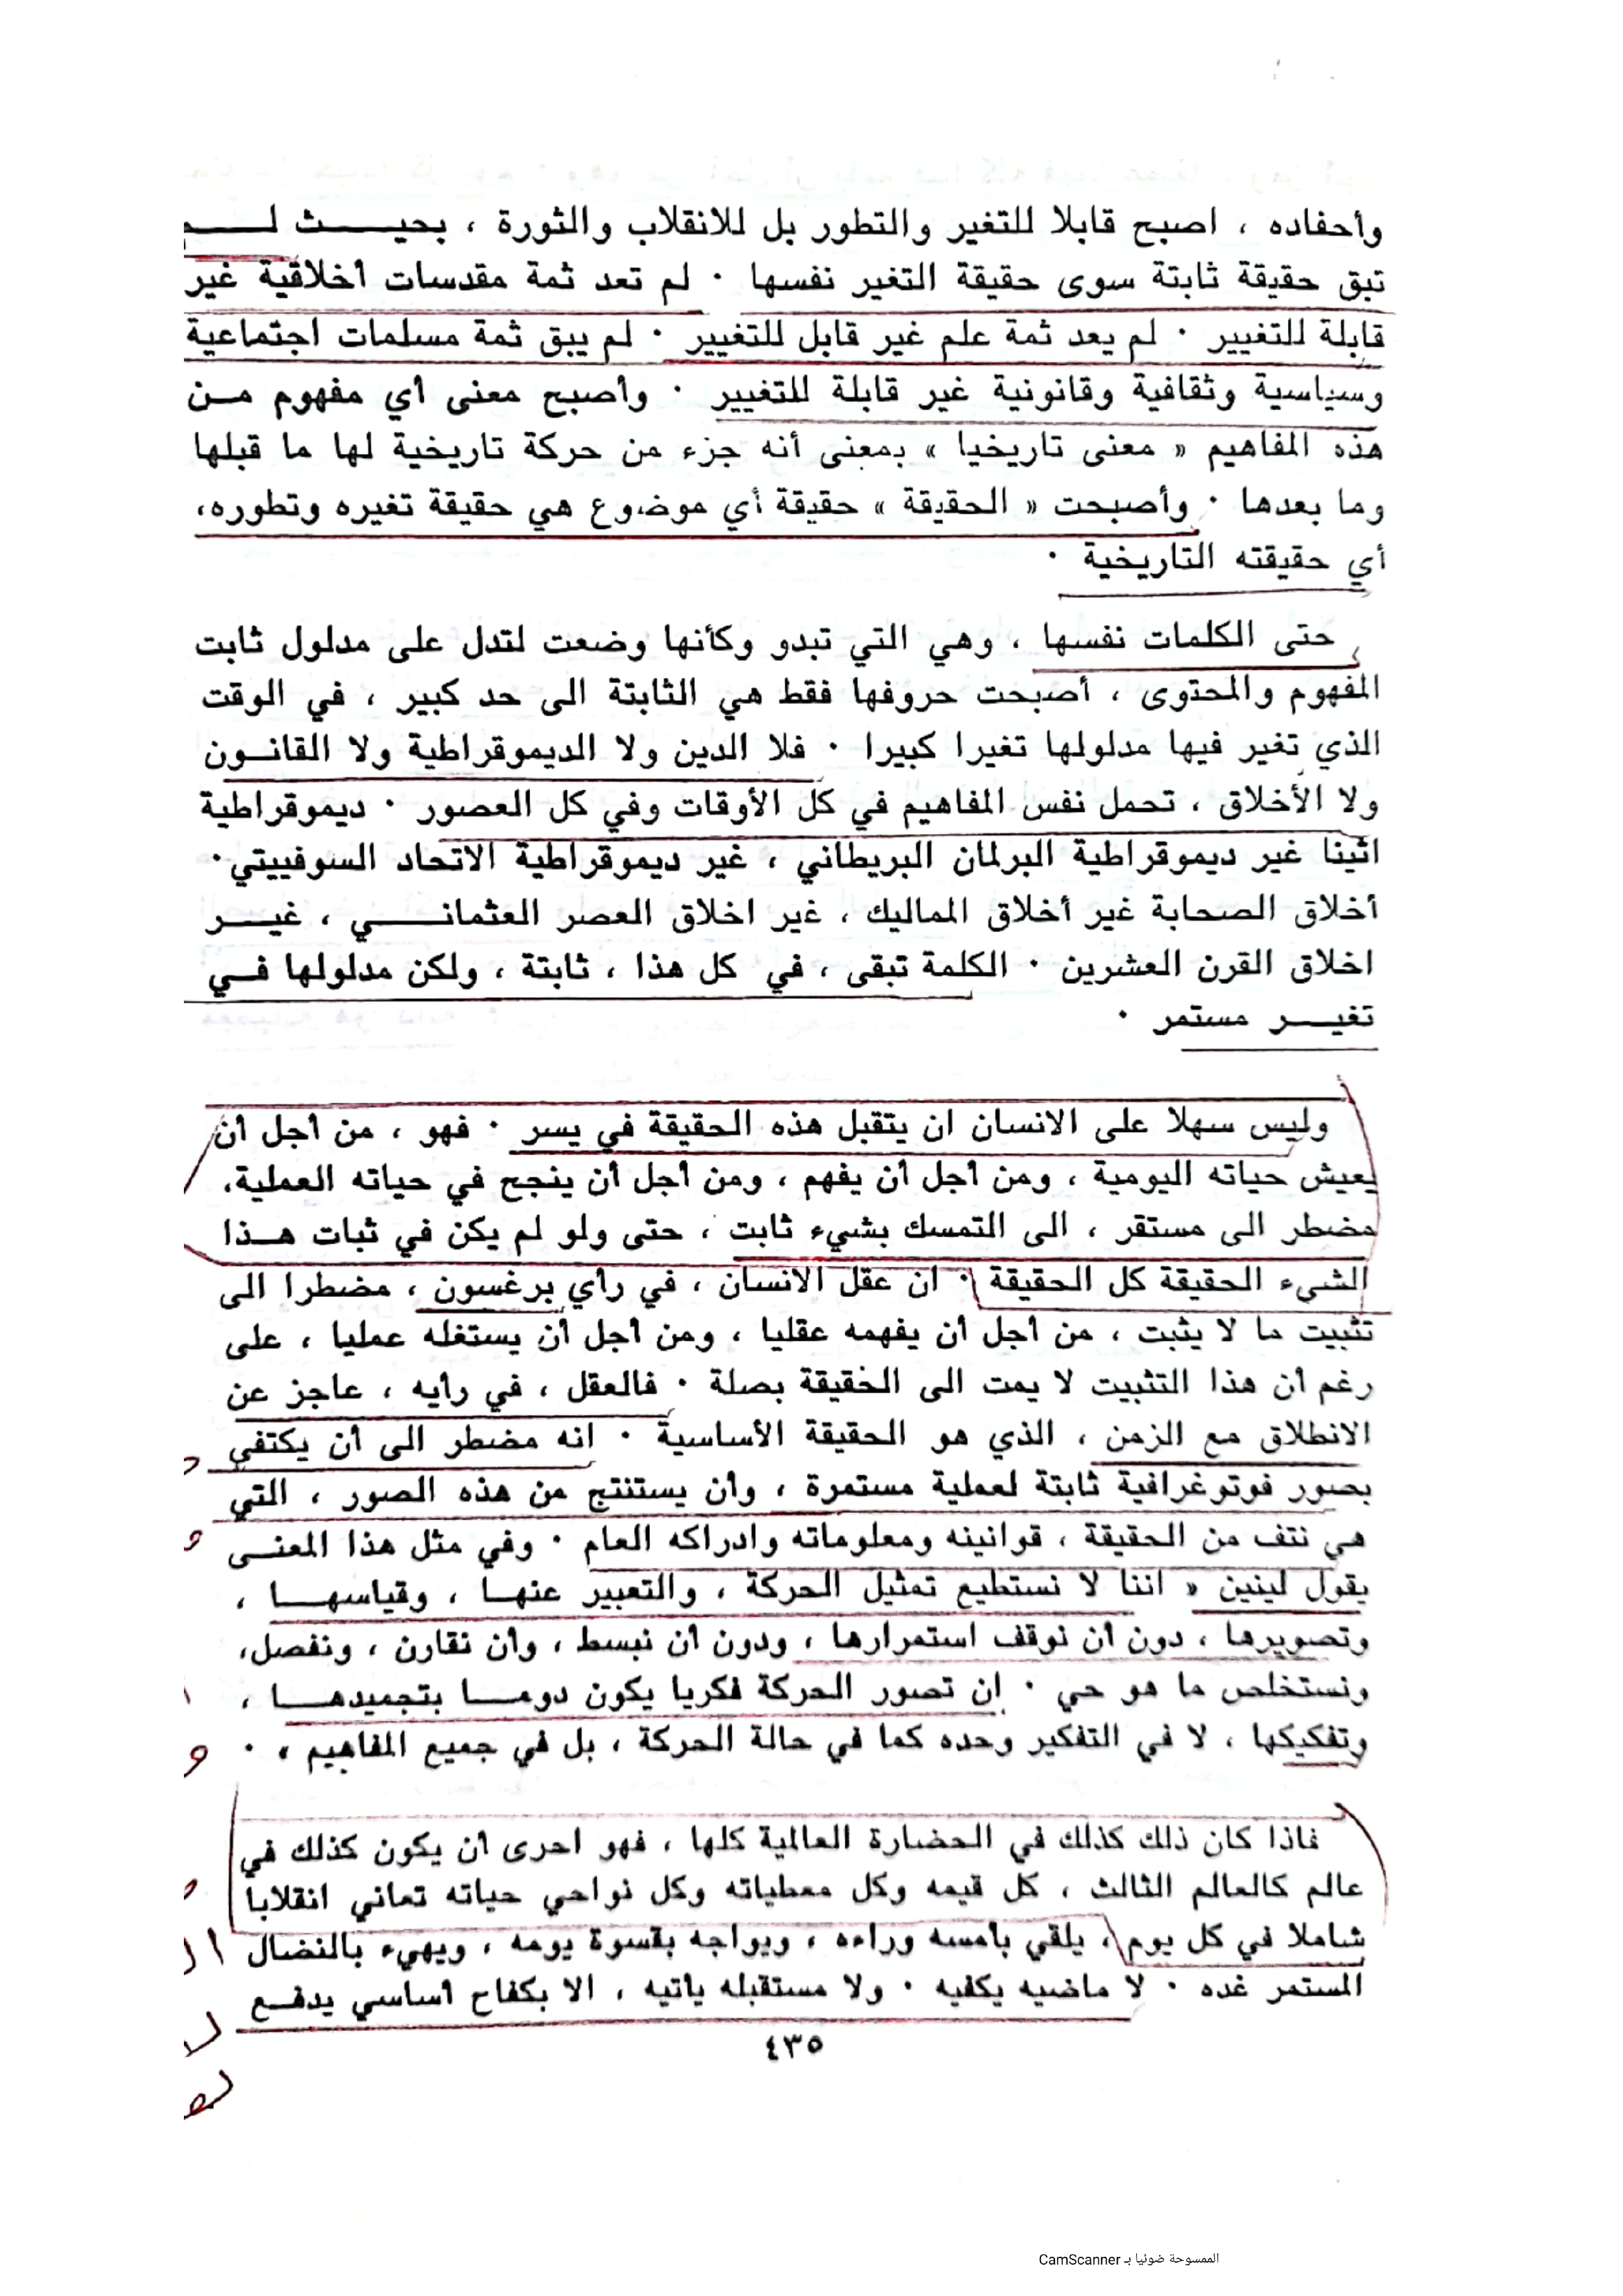 وأحفاده ، اصبح قابلا للتغير والتطور بل للانقلاب والثورة ، بحيث لم
تبق حقيقة ثابتة سوى حقيقة التغير نفسها . لم تعد ثمة مقدسات أخلاقية غير
قابلة للتغيير . لم يعد ثمة علم غير قابل للتغيير . لم يبق ثمة مسلمات اجتماعية
وسياسية وثقافية وقانونية غير قابلة للتغيير . وأصبح معنى أي مفهوم من
هذه المفاهيم « معنى تاريخيا » بمعنى أنه جزء من حركة تاريخية لها ما قبلها
وما بعدها . وأصبحت « الحقيقة » حقيقة أي موضوع هي حقيقة تغيره وتطوره،
أي حقيقته التاريخية .
حتى الكلمات نفسها ، وهي التي تبدو وكأنها وضعت لتدل على مدلول ثابت
المفهوم والمحتوى ، أصبحت حروفها فقط هي الثابتة الى حد كبير ، في الوقت
الذي تغير فيها مدلولها تغيرا كبيرا . فلا الدين ولا الديموقراطية ولا القانون
ولا الأخلاق ، تحمل نفس المفاهيم في كل الأوقات وفي كل العصور . ديموقراطية
اثينا غير ديموقراطية البرلمان البريطاني ، غير ديموقراطية الاتحاد السوفييتي .
أخلاق الصحابة غير أخلاق المماليك ، غير اخلاق العصر العثماني ، غير
اخلاق القرن العشرين . الكلمة تبقى ، في كل هذا ، ثابتة ، ولكن مدلولها في
تغير مستمر .
وليس سهلا على الانسان ان يتقبل هذه الحقيقة في يسر . فهو ، من أجل أن
يعيش حياته اليومية ، ومن أجل أن يفهم ، ومن أجل أن ينجح في حياته العملية،
مضطر الى مستقر ، الى التمسك بشيء ثابت ، حتى ولو لم يكن في ثبات هذا
الشيء الحقيقة كل الحقيقة . ان عقل الانسان ، في رأي برغسون ، مضطرا الى
تثبيت ما لا يثبت ، من أجل أن يفهمه عقليا ، ومن أجل أن يستغله عمليا ، على
رغم أن هذا التثبيت لا يمت الى الحقيقة بصلة . فالعقل ، في رأيه ، عاجز عن
الانطلاق مع الزمن ، الذي هو الحقيقة الأساسية . انه مضطر الى أن يكتفي
بصور فوتوغرافية ثابتة لعملية مستمرة ، وأن يستنتج من هذه الصور ، التي
هي نتف من الحقيقة ، قوانينه ومعلوماته وادراكه العام . وفي مثل هذا المعنى
يقول لينين « اننا لا نستطيع تمثيل الحركة ، والتعبير عنها ، وقياسها ،
وتصويرها ، دون أن نوقف استمرارها ، ودون أن نبسط ، وأن نقارن ، ونفصل،
ونستخلص ما هو حي . إن تصور الحركة فكريا يكون دوما بتجميدها ،
وتفكيكها ، لا في التفكير وحده كما في حالة الحركة ، بل في جميع المفاهيم » .
فاذا كان ذلك كذلك في الحضارة العالمية كلها ، فهو احرى أن يكون كذلك في
عالم كالعالم الثالث ، كل قيمه وكل معطياته وكل نواحي حياته تعاني انقلابا
شاملا في كل يوم ، يلقي بأمسه وراءه ، ويواجه بقسوة يومه ، ويهيء بالنضال
المستمر غده . لا ماضيه يكفيه . ولا مستقبله يأتيه ، الا بكفاح أساسي يدفع
٤٣٥
الممسوحة ضوئيا بـ CamScanner